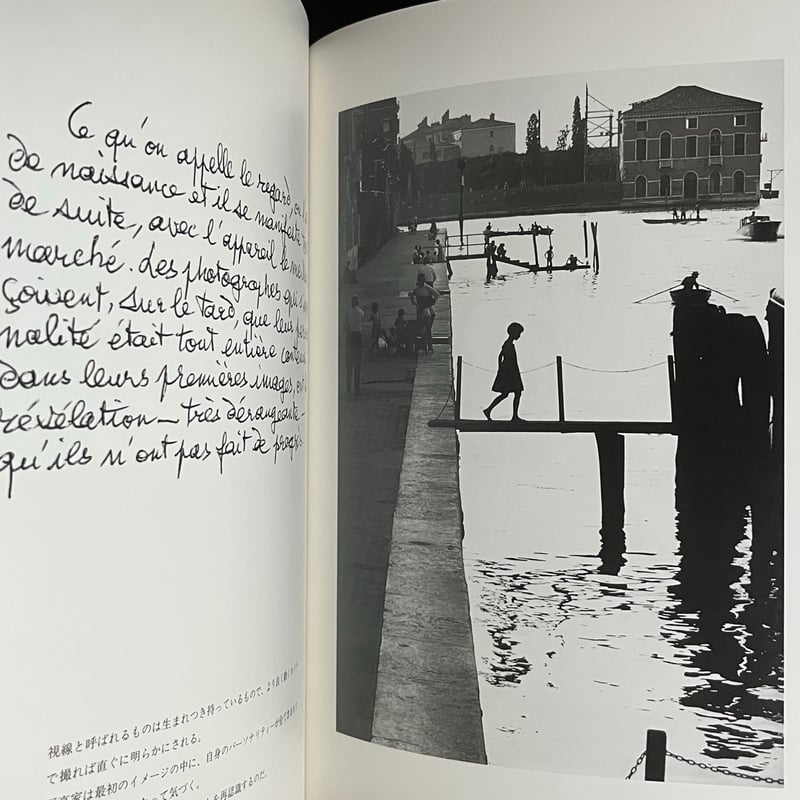 Ce qu'on appelle le regard on
de naissance et il se manifeste
de suite, avec l'appareil le
marché. Les photographes qui
çoivent, sur le tard, que leur
nalité était tout entière
dans leurs premières images,
révélation — très dérangeante —
qu'ils n'ont pas fait de progrès
視線と呼ばれるものは生まれつき持っているもので、より良く動くカメラ
で撮れば直ぐに明らかにされる。
真家は最初のイメージの中に、自身のパーソナリティーが全て
って気づく。
を再認識するのだ。